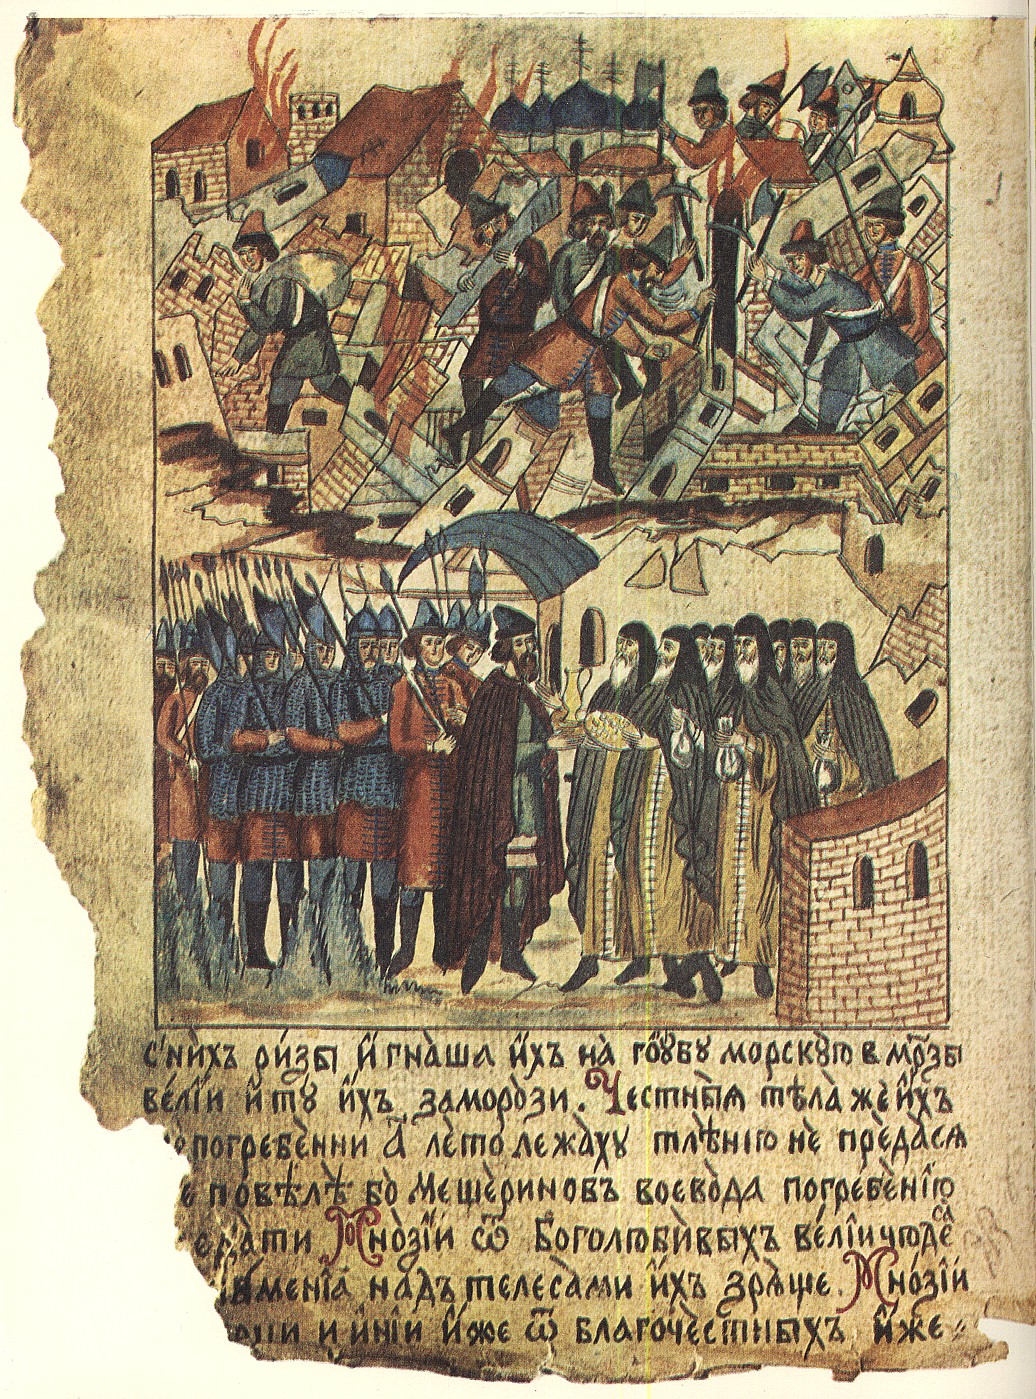 с̾ни́хъ ри́зы и҆ гна̀ша и҆̀хъ на̀ гꙋ́бу морскꙋ́ю в мра́зы
ве́лїи и҆ тꙋ̀ и҆̀хъ заморо́зи. Честны̑я тѣла же и҆̀хъ
погребе́нни а҃ лето лежа́ху тлѣ́нїю нѐ преда́ся
е повѣлѣ̀ бо̀ Мещѐриновъ воево́да погребе́нїю
Мно́зїи ѿ Боголюби́выхъ ве́лїи чюдеса̀
надъ телеса́ми и҆́хъ зря́ще. Мно́зїи
и и҆нїи и҆́же ѿ благоче́стныхъ и҆́же